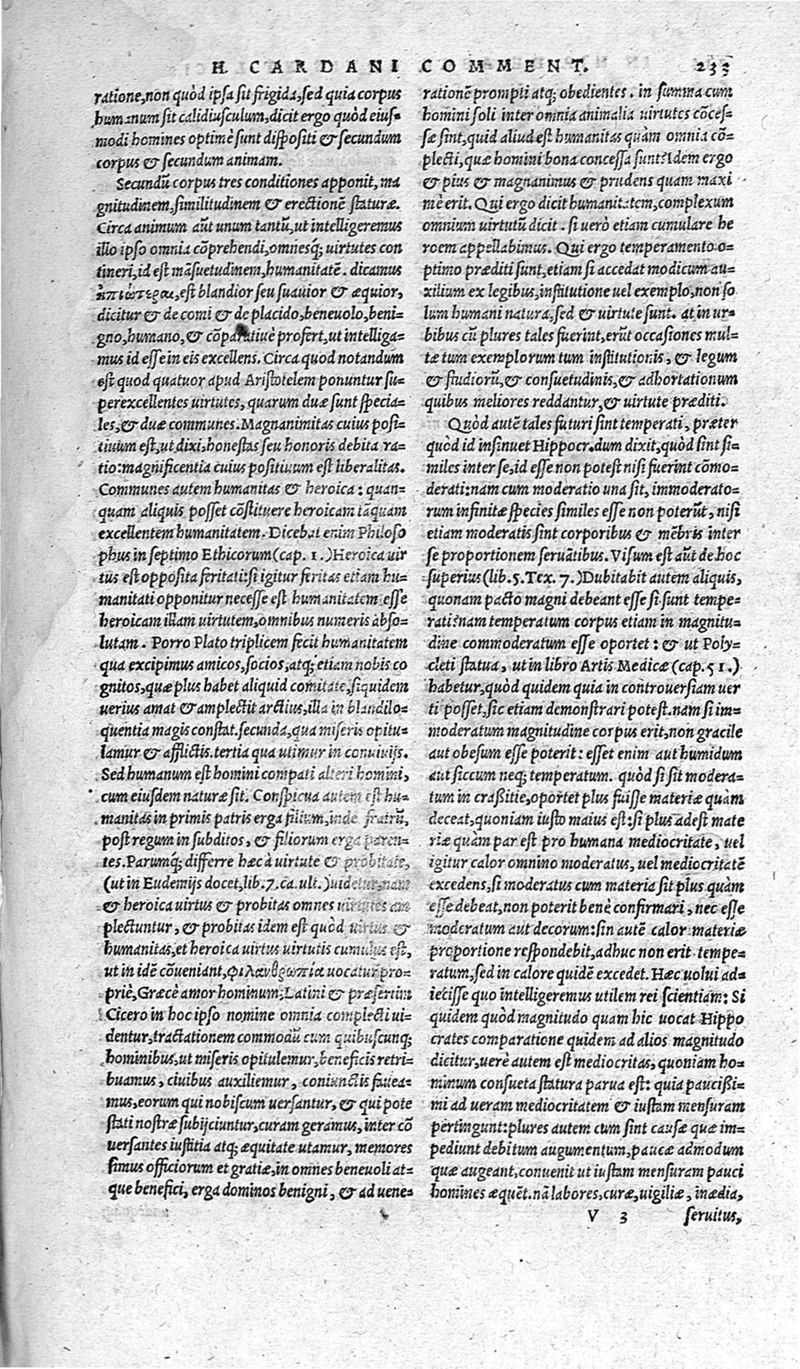 H. CARDANI COMMENT. 233
ratione, non quòd ipsa sit frigida, sed quia corpus
humanum sit calidiusculum, dicit ergo quòd eius=
modi homines optimè sunt dispositi & secundum
corpus & secundum animam.
Secundũ corpus tres conditiones apponit, ma
gnitudinem, similitudinem & erectionẽ staturæ.
Circa animum aũt unum tantũ, ut intelligeremus
illo ipso omnia cõprehendi, omnesq; uirtutes con
tineri, id est mãsuetudinem, humanitatẽ. dicamus
ἠπιώτεραι, est blandior seu suauior & æquior,
dicitur & de comi & de placido, beneuolo, beni=
gno, humano, & cõparatiuè profert, ut intelliga=
mus id esse in eis excellens. Circa quod notandum
est quod quatuor apud Aristotelem ponuntur su=
perexcellentes uirtutes, quarum duæ sunt specia=
les, & duæ communes. Magnanimitas cuius posi=
tiuum est, ut dixi, honestas seu honoris debita ra=
tio: magnificentia cuius positiuum est liberalitas.
Communes autem humanitas & heroica: quan=
quam aliquis posset cõstituere heroicam tãquam
excellentem humanitatem. Dicebat enim Philoso
phus in septimo Ethicorum (cap. 1.) Heroica uir
tus est opposita feritati: si igitur feritas etiam hu=
manitati opponitur necesse est humanitatem esse
heroicam illam uirtutem, omnibus numeris abso=
lutam. Porro Plato triplicem fecit humanitatem
qua excipimus amicos, socios, atq; etiam nobis co
gnitos, quæ plus habet aliquid comitatẽ, siquidem
uerius amat & amplectit arctius, illa in blandilo=
quentia magis constat. secunda, qua miseris opitu=
lamur & afflictis. tertia qua utimur in conuiuijs.
Sed humanum est homini compati alteri homini,
cum eiusdem naturæ sit. Conspicua autem est hu=
manitas in primis patris erga filium, inde fratrũ,
post regum in subditos, & filiorum erga paren=
tes. Parumq; differre hæc à uirtute & probitate,
(ut in Eudemijs docet, lib. 7. ca. ult.) uidetur, nam
& heroica uirtus & probitas omnes uirtutes am
plectuntur, & probitas idem est quòd uirtus &
humanitas, et heroica uirtus uirtutis cumulus est,
ut in idẽ cõueniant, φιλανθρωπία uocatur pro=
priè, Græcè amor hominum; Latini & præsertim
Cicero in hoc ipso nomine omnia complecti ui=
dentur, tractationem commodũ cum quibuscunq;
hominibus, ut miseris opitulemur, beneficis retri=
buamus, ciuibus auxiliemur, coniunctis fauea=
mus, eorum qui nobiscum uersantur, & qui pote
stati nostræ subijciuntur, curam geramus, inter cõ
uersantes iustitia atq; æquitate utamur, memores
simus officiorum et gratiæ, in omnes beneuoli at=
que benefici, erga dominos benigni, & ad uene=
rationẽ prompti atq; obedientes. in summa cum
homini soli inter omnia animalia uirtutes cõces=
sæ sint, quid aliud est humanitas quàm omnia cõ=
plecti, quæ homini bona concessa sunt? Idem ergo
& pius & magnanimus & prudens quam maxi
mè erit. Qui ergo dicit humanitatem, complexum
omnium uirtutũ dicit. si uerò etiam cumulare he
roem appellabimus. Qui ergo temperamento o=
ptimo præditi sunt, etiam si accedat modicum au=
xilium ex legibus, institutione uel exemplo, non so
lum humani natura, sed & uirtute sunt. at in ur=
bibus cũ plures tales fuerint, erũt occasiones mul=
tæ tum exemplorum tum institutionis, & legum
& studiorũ, & consuetudinis, & adhortationum
quibus meliores reddantur, & uirtute præditi.
Quòd autẽ tales futuri sint temperati, præter
quòd id insinuet Hippocr. dum dixit, quòd sint si=
miles inter se, id esse non potest nisi fuerint cõmo=
derati: nam cum moderatio una sit, immoderato=
rum infinitæ species similes esse non poterũt, nisi
etiam moderatis sint corporibus & mẽbris inter
se proportionem seruãtibus. Visum est aũt de hoc
superius (lib. 5. Tex. 7.) Dubitabit autem aliquis,
quonam pacto magni debeant esse si sunt tempe=
rati: nam temperatum corpus etiam in magnitu=
dine commoderatum esse oportet: & ut Poly=
cleti statua, ut in libro Artis Medicæ (cap. 51.)
habetur, quòd quidem quia in controuersiam uer
ti posset, sic etiam demonstrari potest. nam si im=
moderatum magnitudine corpus erit, non gracile
aut obesum esse poterit: esset enim aut humidum
aut siccum neq; temperatum. quòd si sit modera=
tum in crassitie, oportet plus fuisse materiæ quàm
deceat, quoniam iusto maius est: si plus adest mate
riæ quàm par est pro humana mediocritate, uel
igitur calor omnino moderatus, uel mediocritatẽ
excedens, si moderatus cum materia sit plus quàm
esse debeat, non poterit benè confirmari, nec esse
moderatum aut decorum: sin autẽ calor materiæ
proportione respondebit, adhuc non erit tempe=
ratum, sed in calore quidẽ excedet. Hæc uolui ad=
iecisse quo intelligeremus utilem rei scientiam: Si
quidem quòd magnitudo quam hic uocat Hippo
crates comparatione quidem ad alios magnitudo
dicitur, uerè autem est mediocritas, quoniam ho=
minum consueta statura parua est: quia paucissi=
mi ad ueram mediocritatem & iustam mensuram
pertingunt: plures autem cum sint causæ quæ im=
pediunt debitum augumentum, paucæ admodum
quæ augeant, conuenit ut iustam mensuram pauci
homines æquẽt. nã labores, curæ, uigiliæ, inædia,
V 3 seruitus,